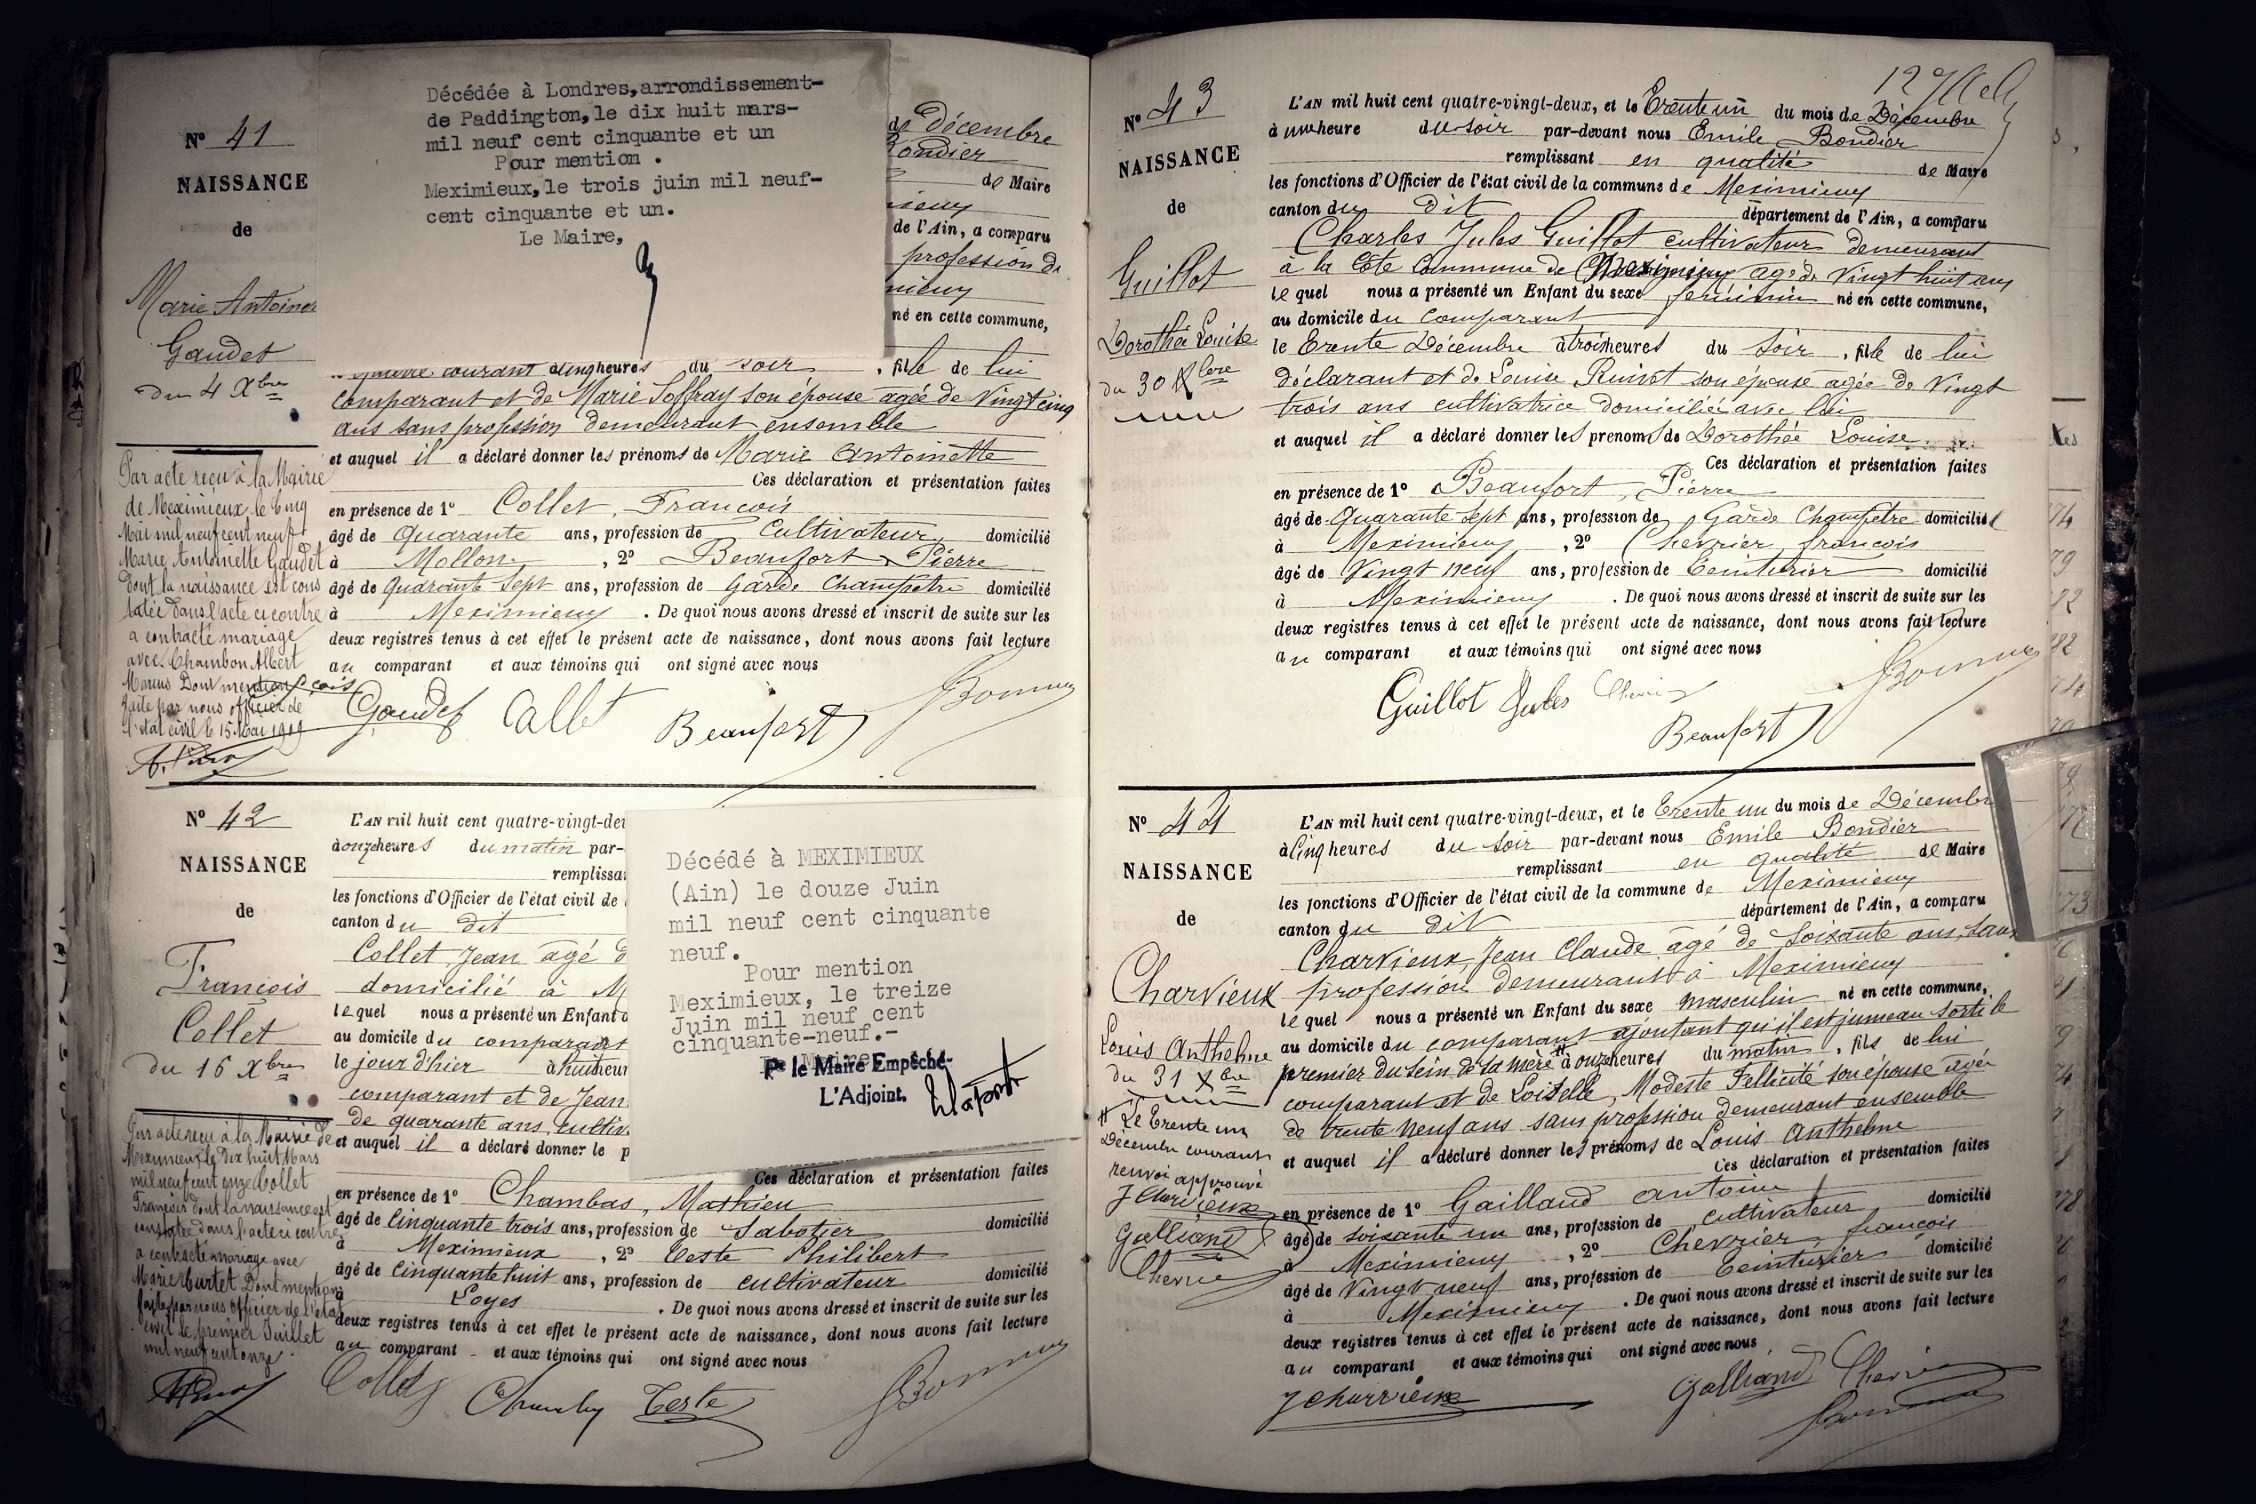 Nº 41
NAISSANCE
de
Marie Antoine
Gaudet
du 4 Xbre
Décédée à Londres, arrondissement-
de Paddington, le dix huit mars-
mil neuf cent cinquante et un
Pour mention .
Meximieux, le trois juin mil neuf-
cent cinquante et un.
Le Maire,
de Décembre
Bondier
de Maire
de l'Ain, a comparu
profession de
né en cette commune,
courant à cinq heures du soir , fille de lui
comparant et de Marie Soffray son épouse agée de Vingt cinq
ans sans profession demeurant ensemble
et auquel il a déclaré donner les prénoms de Marie Antoinette
Ces déclaration et présentation faites
en présence de 1º Collet, François
âgé de Quarante ans, profession de Cultivateur domicilié
à Mollon , 2º Beaufort Pierre
âgé de Quarante Sept ans, profession de Garde Champêtre domicilié
à Meximieux . De quoi nous avons dressé et inscrit de suite sur les
deux registres tenus à cet effet le présent acte de naissance, dont nous avons fait lecture
au comparant et aux témoins qui ont signé avec nous
Gaudet Collet Beaufort
Par acte reçu à la Mairie
de Meximieux le Cinq
Mai mil neuf cent neuf
Marie Antoinette Gaudet
dont la naissance est cons
tatée dans l'acte ci contre
a contracté mariage
avec Chambon Albert
Marius Dont mention
faite par nous officier de
l'état civil le 15 Mai 1909
Nº 42
NAISSANCE
de
François
Collet
du 16 Xbre
L'AN mil huit cent quatre-vingt-deu
à onze heures du matin par-
remplissa
les fonctions d'Officier de l'état civil de
canton du dit
Collet, Jean âgé d
domicilié à M
lequel nous a présenté un Enfant d
au domicile du comparant
le jour d'hier à huit heur
comparant et de Jean
de quarante ans, cultiv
et auquel il a déclaré donner le p
Décédé à MEXIMIEUX
(Ain) le douze Juin
mil neuf cent cinquante
neuf.
Pour mention
Meximieux, le treize
Juin mil neuf cent
cinquante-neuf.-
Le Maire
Pr le Maire Empêché
L'Adjoint.
Ces déclaration et présentation faites
en présence de 1º Chambas, Mathieu
âgé de Cinquante trois ans, profession de Sabotier domicilié
à Meximieux , 2º Teste Philibert
âgé de Cinquante huit ans, profession de cultivateur domicilié
à Loyes . De quoi nous avons dressé et inscrit de suite sur les
deux registres tenus à cet effet le présent acte de naissance, dont nous avons fait lecture
au comparant et aux témoins qui ont signé avec nous
Collet Teste
Par acte reçu à la Mairie de
Meximieux le Dix huit Mars
mil neuf cent onze Collet
François dont la naissance est
constatée dans l'acte ci contre
a contracté mariage avec
Marie Curtet Dont mention
faite par nous officier de l'état
civil le premier Juillet
mil neuf cent onze
Nº 43
NAISSANCE
de
Guillot
Dorothée Louise
du 30 Xbre
L'AN mil huit cent quatre-vingt-deux, et le Trente un du mois de Décembre
à une heure du soir par-devant nous Emile Bondier
remplissant en qualité de Maire
les fonctions d'Officier de l'état civil de la commune de Meximieux
canton du dit département de l'Ain, a comparu
Charles Jules Guillot cultivateur demeurant
à la Côte Commune de Meximieux agé de Vingt huit ans
lequel nous a présenté un Enfant du sexe féminin né en cette commune,
au domicile du comparant
le Trente Décembre à trois heures du soir , fille de lui
déclarant et de Louise Ruivet son épouse agée de Vingt
trois ans cultivatrice domiciliée avec lui
et auquel il a déclaré donner les prenoms de Dorothée Louise
Ces déclaration et présentation faites
en présence de 1º Beaufort, Pierre
âgé de Quarante sept ans, profession de Garde Champêtre domicilié
à Meximieux , 2º Chevrier françois
âgé de Vingt neuf ans, profession de Teinturier domicilié
à Meximieux . De quoi nous avons dressé et inscrit de suite sur les
deux registres tenus à cet effet le présent acte de naissance, dont nous avons fait lecture
au comparant et aux témoins qui ont signé avec nous
Guillot Jules
Beaufort
Nº 44
NAISSANCE
de
Charvieux
Louis Anthelme
du 31 Xbre
L'AN mil huit cent quatre-vingt-deux, et le Trente un du mois de Décembre
à Cinq heures du soir par-devant nous Emile Bondier
remplissant en qualité de Maire
les fonctions d'Officier de l'état civil de la commune de Meximieux
canton du dit département de l'Ain, a comparu
Charvieux, Jean Claude âgé de Soixante ans, sans
profession demeurant à Meximieux
lequel nous a présenté un Enfant du sexe masculin né en cette commune,
au domicile du comparant ajoutant qu'il est jumeau sorti le
premier du sein de sa mère # à onze heures du matin , fils de lui
comparant et de Loiselle, Modeste Fellicité son épouse agée
de trente neuf ans sans profession demeurant ensemble
et auquel il a déclaré donner les prénoms de Louis Anthelme
Ces déclaration et présentation faites
en présence de 1º Gailland antoine
âgé de soixante un ans, profession de cultivateur domicilié
à Meximieux , 2º Chevrier, françois
âgé de Vingt neuf ans, profession de Teinturier domicilié
à Meximieux . De quoi nous avons dressé et inscrit de suite sur les
deux registres tenus à cet effet le présent acte de naissance, dont nous avons fait lecture
au comparant et aux témoins qui ont signé avec nous
J Charvieux Galliand
# Le Trente un
Décembre courant
renvoi approuvé
J Charvieux
Galliand